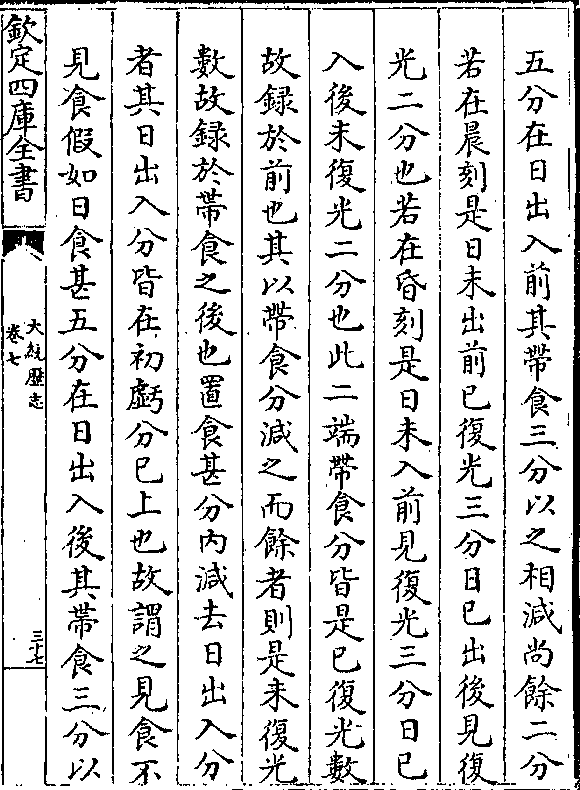 五分在日出入前其帶食三分以之相減尚餘二分
若在晨刻是日未出前已復光三分日已出後見復
光二分也若在昏刻是日未入前見復光三分日已
入後未復光二分也此二端帶食分皆是已復光數
故録於前也其以帶食分減之而餘者則是未復光
數故録於帶食之後也置食甚分內減去日出入分
者其日出入分皆在初虧分已上也故謂之見食不
見食假如日食甚五分在日出入後其帶食三分以
欽定四庫全書
大統歴志
卷七
三十七